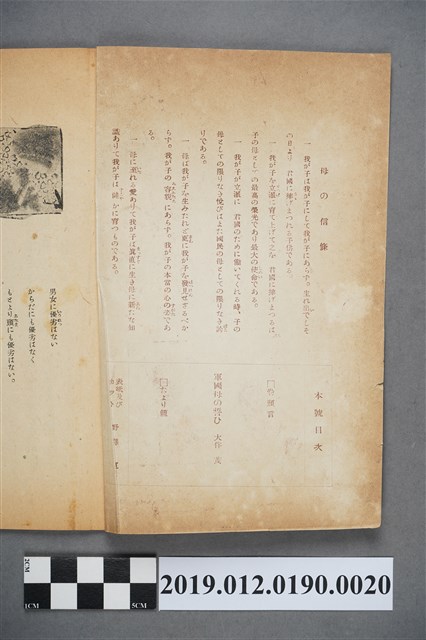 母の信條
一、我が子は我が子にして我が子にあらず。生れ出でしそ
の日より、君國に捧げまつれる子供である。
一、我が子を立派に育て上げて之を、君國に捧げまつるは、
子の母としての最高の榮光であり最大の使命である。
一、我が子が立派に、君國のために働いてくれる時、子の
母としての限りなき悦びはまた國民の母としての限りなき誇
りである。
一、母は我が子を生みたれど更に我が子を發見せざるべか
らず。我が子の容貌にあらず。我が子の本當の心の姿であ
る。
一、母に溢れる愛ありて我が子は眞直に生き母に新たな知
識ありて我が子は健かに育つものである。
本號目次
卷頭言
軍國母の悟ひ
たより欄
表紙及び
男女に優劣はない
かちだにも優劣はなく
もとより頭にも優劣はない。
2CM
1CM
5CM
2019.012.0190.0020